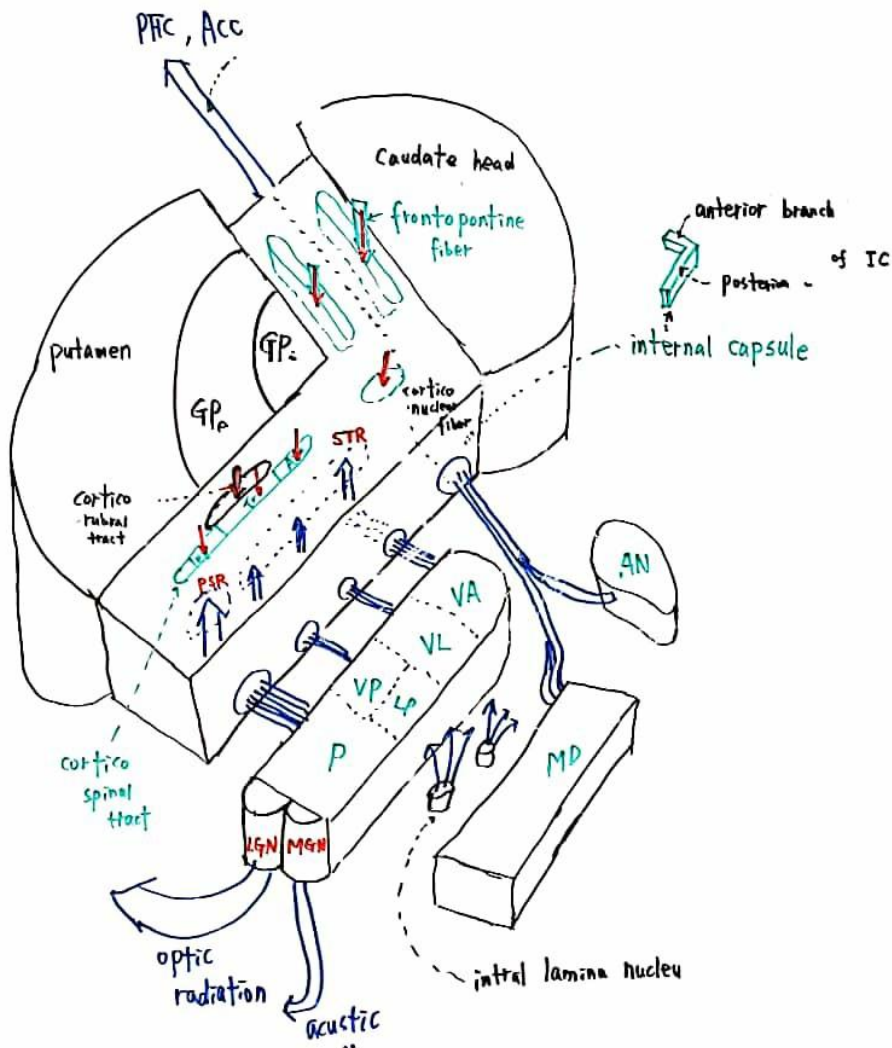 PFC, ACC
caudate head
frontopontine
fiber
anterior branch
of IC
posterior
internal capsule
putamen
GPi
GPe
cortico
nuclear
fiber
STR
cortico
rubral
tract
PSR
AN
VA
VL
VP
LP
P
MD
cortico
spinal
tract
LGN
MGN
optic
radiation
intral lamina nucleu
acustic